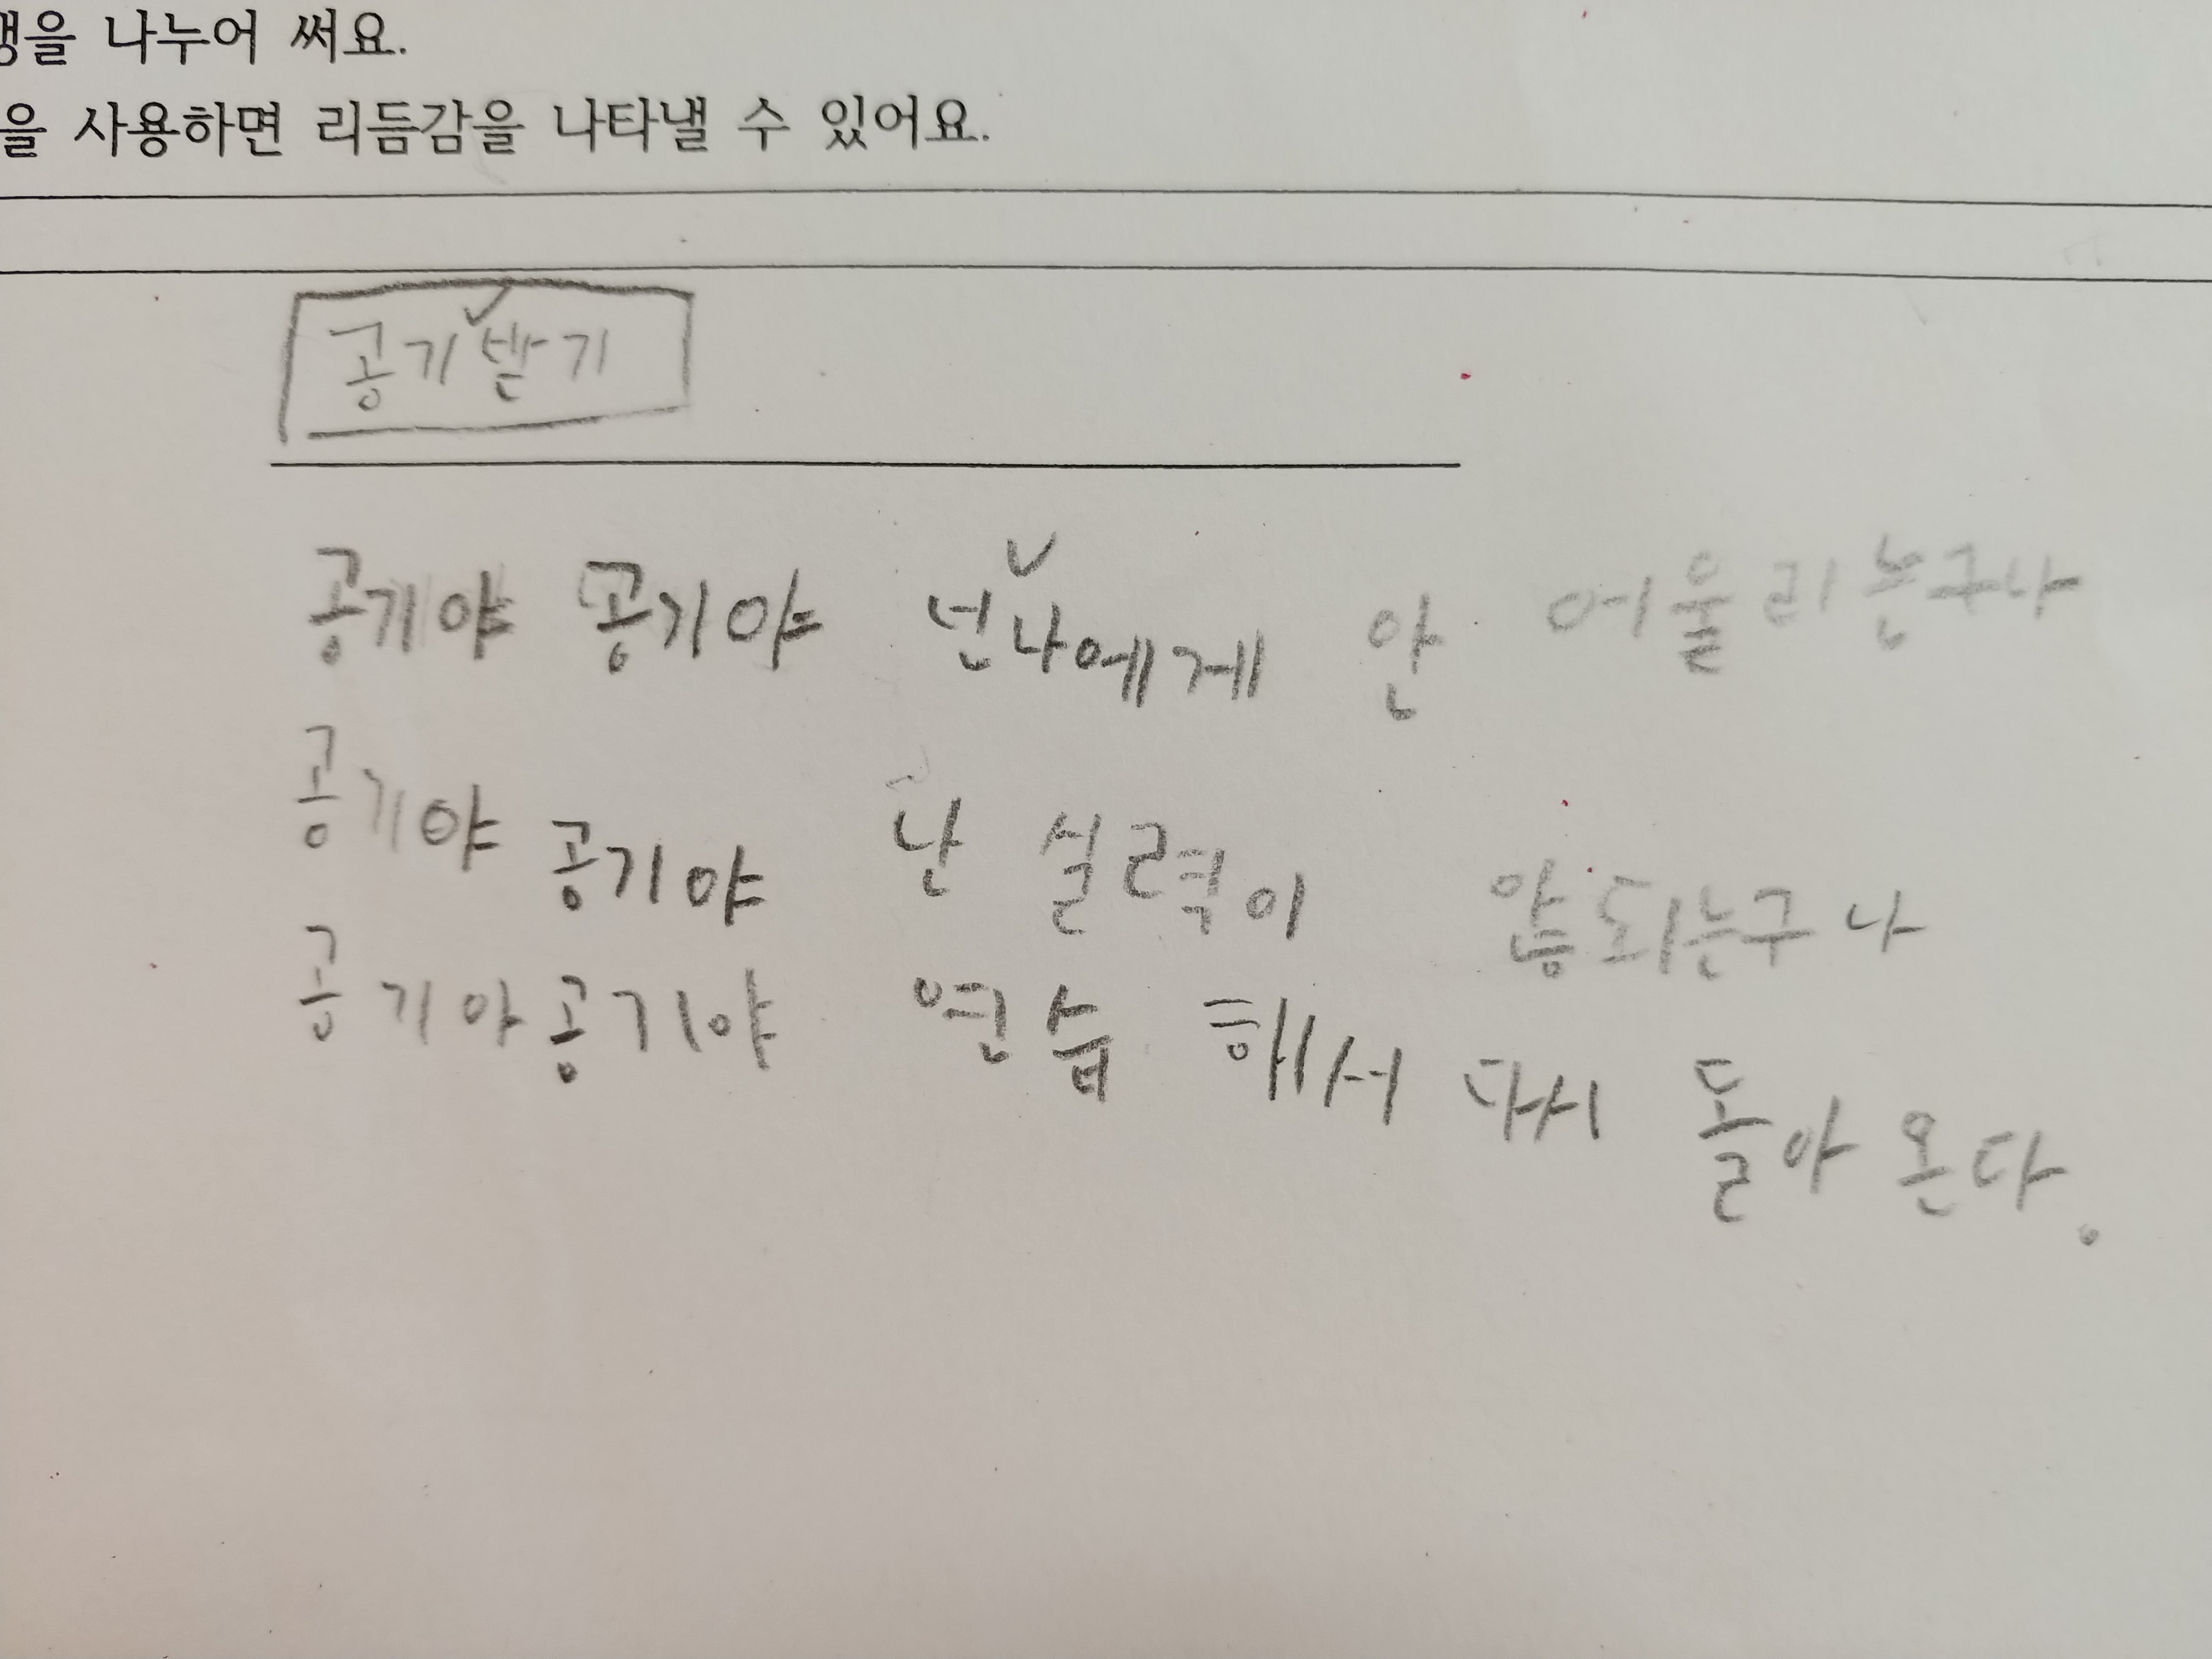 을 나누어 써요.
을 사용하면 리듬감을 나타낼 수 있어요.
공기 받기
공기야 공기야 넌 나에게 안 어울리는구나
공기야 공기야 난 실력이 않되는구나
공기야 공기야 연습 해서 다시 돌아 온다.